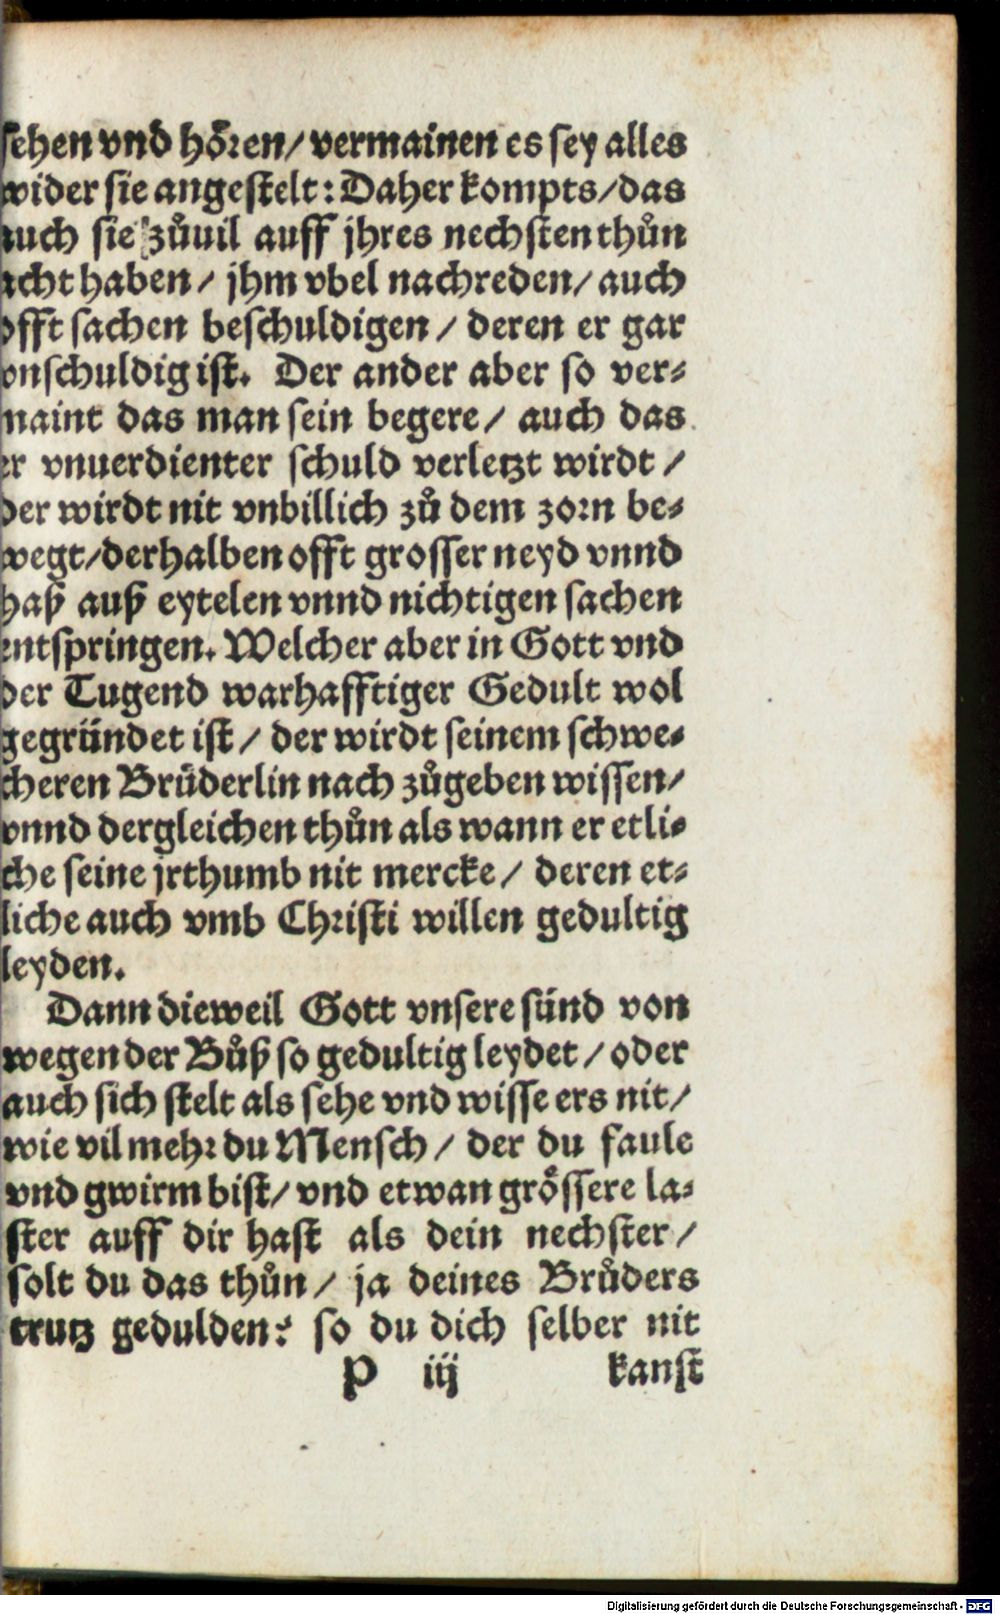 sehen vnd hören/ vermainen es sey alles
wider sie angestelt: Daher kompts/ das
auch sie zůuil auff jhres nechsten thůn
acht haben/ jhm vbel nachreden/ auch
offt sachen beschuldigen/ deren er gar
vnschuldig ist. Der ander aber so ver-
maint das man sein begere/ auch das
er vnuerdienter schuld verletzt wirdt/
der wirdt nit vnbillich zů dem zorn be-
wegt/ derhalben offt grosser neyd vnnd
haß auß eytelen vnnd nichtigen sachen
entspringen. Welcher aber in Gott vnd
der Tugend warhafftiger Gedult wol
gegründet ist/ der wirdt seinem schwe-
cheren Brüderlin nach zůgeben wissen/
vnnd dergleichen thůn als wann er etli-
che seine jrthumb nit mercke/ deren et-
liche auch vmb Christi willen gedultig
leyden.
Dann dieweil Gott vnsere sünd von
wegen der Bůß so gedultig leydet/ oder
auch sich stelt als sehe vnd wisse ers nit/
wie vil mehr du Mensch/ der du faule
vnd gwirm bist/ vnd etwan grössere la-
ster auff dir hast als dein nechster/
solt du das thůn/ ja deines Brůders
trutz gedulden? so du dich selber nit
P iij kanst
Digitalisierung gefördert durch die Deutsche Forschungsgemeinschaft - DFG